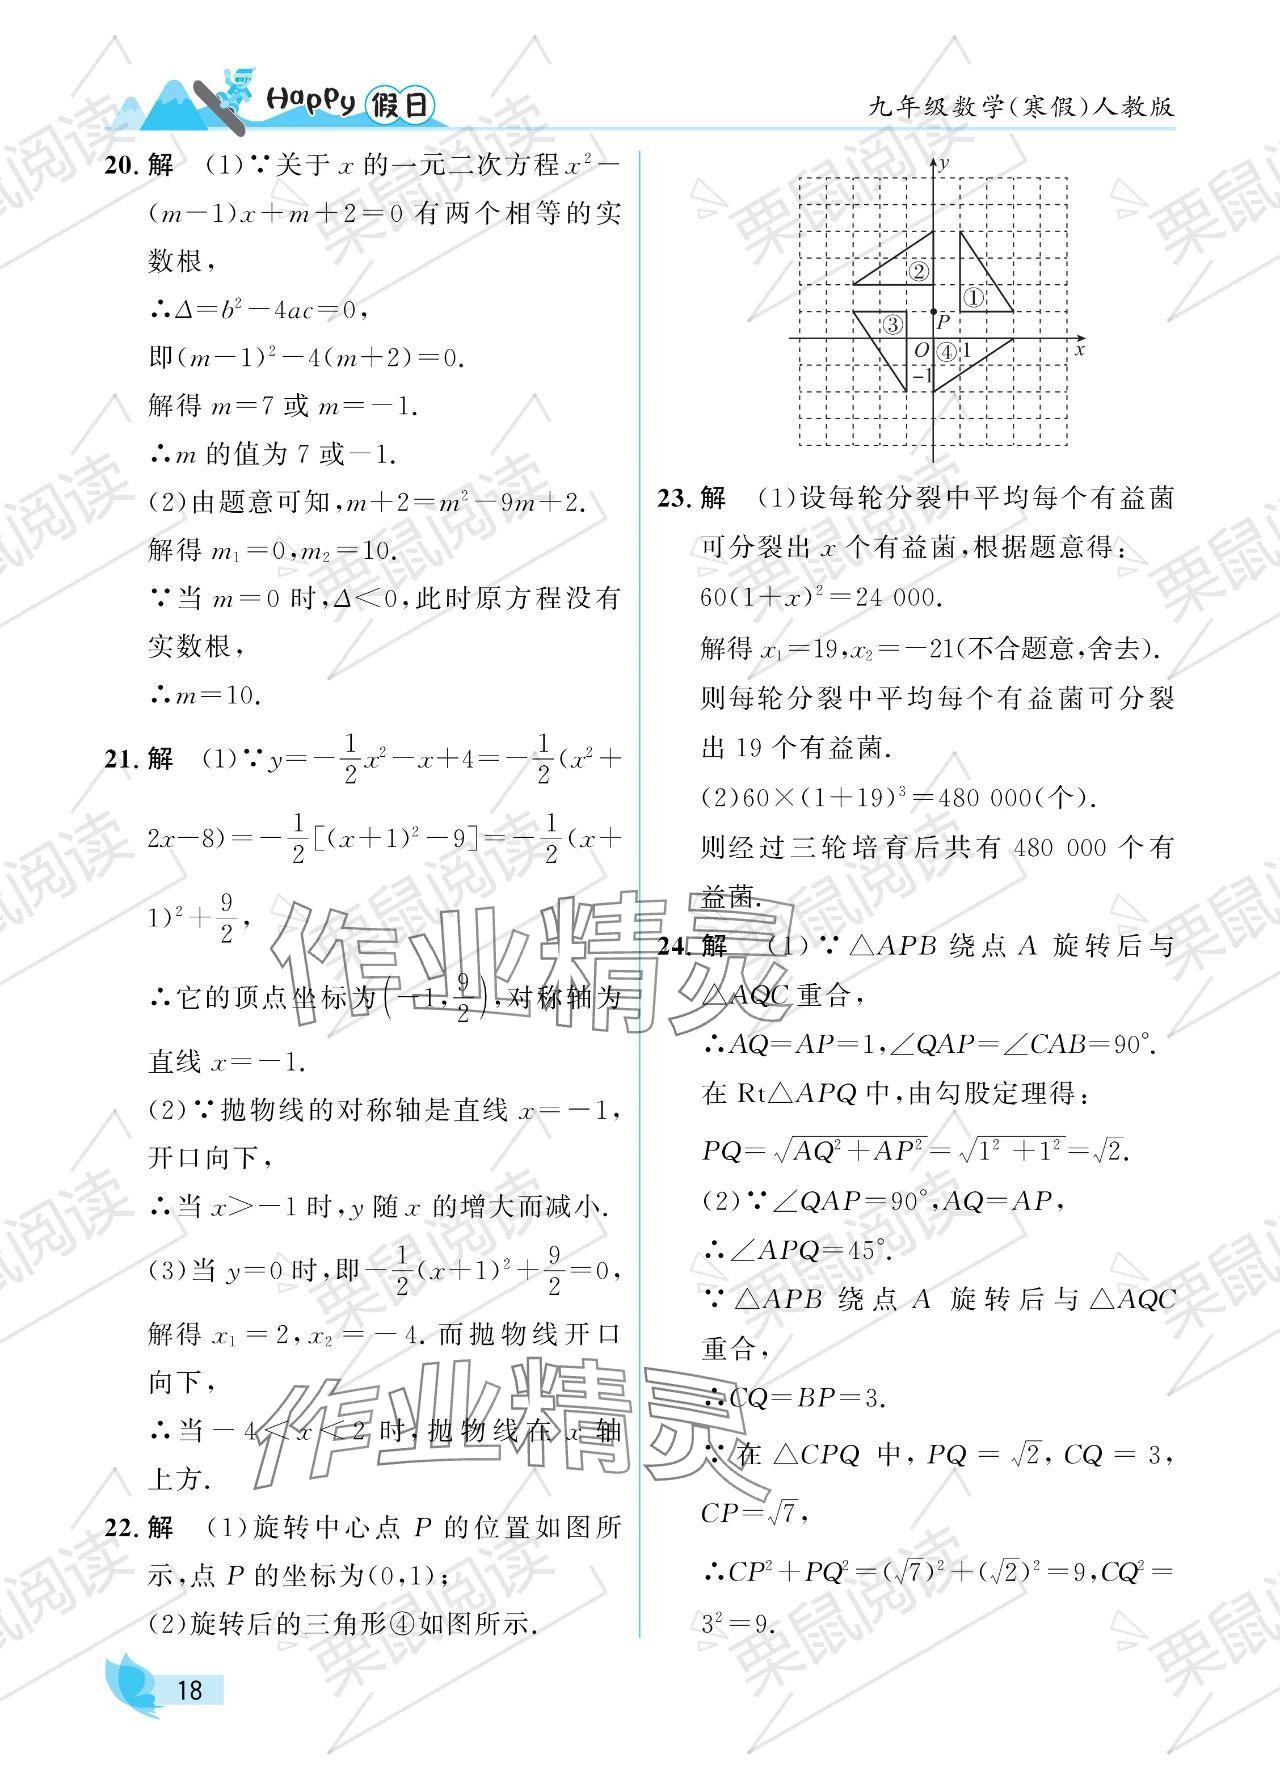 Happy假日
九年级数学(寒假)人教版
20. 解 (1)∵关于 x 的一元二次方程 x²-
(m-1)x+m+2=0 有两个相等的实
数根,
∴Δ=b²-4ac=0,
即(m-1)²-4(m+2)=0.
解得 m=7 或 m=-1.
∴m 的值为 7 或-1.
(2)由题意可知,m+2=m²-9m+2.
解得 m₁=0,m₂=10.
∵当 m=0 时,Δ<0,此时原方程没有
实数根,
∴m=10.
21. 解 (1)∵y=-1/2x²-x+4=-1/2(x²+
2x-8)=-1/2[(x+1)²-9]=-1/2(x+
1)²+9/2,
∴它的顶点坐标为(-1,9/2),对称轴为
直线 x=-1.
(2)∵抛物线的对称轴是直线 x=-1,
开口向下,
∴当 x>-1 时,y 随 x 的增大而减小.
(3)当 y=0 时,即-1/2(x+1)²+9/2=0,
解得 x₁=2,x₂=-4.而抛物线开口
向下,
∴当-4<x<2 时,抛物线在 x 轴
上方.
22. 解 (1)旋转中心点 P 的位置如图所
示,点 P 的坐标为(0,1);
(2)旋转后的三角形④如图所示.
y
②
①
③
P
O
④
1
x
-1
23. 解 (1)设每轮分裂中平均每个有益菌
可分裂出 x 个有益菌,根据题意得:
60(1+x)²=24 000.
解得 x₁=19,x₂=-21(不合题意,舍去).
则每轮分裂中平均每个有益菌可分裂
出 19 个有益菌.
(2)60×(1+19)³=480 000(个).
则经过三轮培育后共有 480 000 个有
益菌.
24. 解 (1)∵△APB 绕点 A 旋转后与
△AQC 重合,
∴AQ=AP=1,∠QAP=∠CAB=90°.
在 Rt△APQ 中,由勾股定理得:
PQ=√(AQ²+AP²)=√(1²+1²)=√2.
(2)∵∠QAP=90°,AQ=AP,
∴∠APQ=45°.
∵△APB 绕点 A 旋转后与△AQC
重合,
∴CQ=BP=3.
∵在△CPQ 中,PQ=√2,CQ=3,
CP=√7,
∴CP²+PQ²=(√7)²+(√2)²=9,CQ²=
3²=9.
18
作业精灵
作业精灵
栗鼠阅读